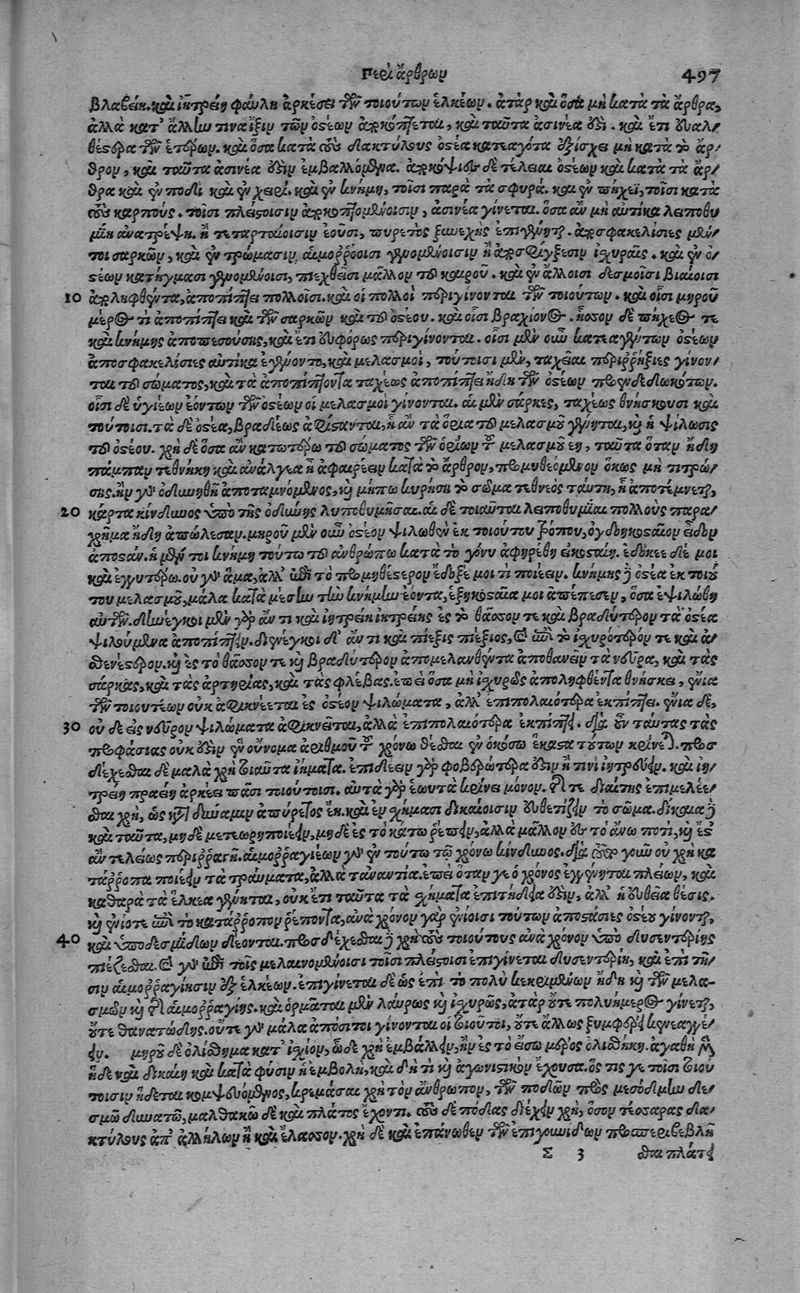 Περὶ ἄρθρων 497
βλαβείη. καὶ ἰητρείη φαύλη ἀρκέσει τῶν τοιούτων ἑλκέων. ἀτὰρ καὶ ὅσα μὴ κατὰ τὰ ἄρθρα,
ἀλλὰ κατ' ἄλλην τινα ἴξιν τῶν ὀστέων ἀποκόπτεται, καὶ ταῦτα ἀσινέα ἐστὶ. καὶ ἔτι εὐαλ-
θέστερα τῶν ἑτέρων. καὶ ὅσα κατὰ τοὺς δακτύλους ὀστέα κατεαγότα ἐξίσχει μὴ κατὰ τὸ ἄρ-
θρον, καὶ ταῦτα ἀσινέα ἐστὶν ἐμβαλλόμενα. ἀποκόψιες δὲ τέλειαι ὀστέων καὶ κατὰ τὰ ἄρ-
θρα καὶ ἐν ποδὶ καὶ ἐν χειρὶ. καὶ ἐν κνήμῃ, τοῖσι παρὰ τὰ σφυρά. καὶ ἐν πήχει, τοῖσι κατὰ
τοὺς καρποὺς. τοῖσι πλείστοισιν ἀποκοπτομένοισιν, ἀσινέα γίνεται. ὅσα ἂν μὴ αὐτίκα λειποθυ
μίη ἀνατρέψῃ. ἢ τεταρταίοισιν ἐοῦσι, πυρετὸς ξυνεχὴς ἐπιγένηται. ἀποσφακελίσιες μέντοι
τοι σαρκῶν, καὶ ἐν τρώμασιν αἱμορρόοισι γενομένοισιν ἢ ἀποσφίγξεσιν ἰσχυραῖς. καὶ ἐν ὀ-
στέων κατήγμασι γενομένοισι, πιεχθεῖσι μᾶλλον τοῦ καιροῦ. καὶ ἐν ἄλλοισι δεσμοῖσι βιαίοισι
10 ἀποληφθέντα, ἀποπίπτει πολλοῖσι. καὶ οἱ πολλοὶ περιγίνονται τῶν τοιούτων. καὶ οἷσι μηροῦ
μέρος τι ἀποπίπτει καὶ τῶν σαρκῶν καὶ τοῦ ὀστέου. καὶ οἷσι βραχίονος. ἧσσον δὲ πήχεός τε
καὶ κνήμης ἀποπεσούσης, καὶ ἔτι εὐφόρως περιγίνονται. οἷσι μὲν οὖν κατεαγέντων ὀστέων
ἀποσφακελίσιες αὐτίκα ἐγένοντο, καὶ μελασμοὶ, τούτοισι μὲν, ταχεῖαι περιρρήξιες γίνον-
ται τοῦ σώματος, καὶ τὰ ἀποπίπτοντα ταχέως ἀποπίπτει ἤδη τῶν ὀστέων προενδεδωκότων.
οἷσι δὲ ὑγιέων ἐόντων τῶν ὀστέων οἱ μελασμοὶ γίνονται. αἱ μὲν σάρκες, ταχέως θνήσκουσι καὶ
τούτοισι. τὰ δὲ ὀστέα, βραδέως ἀφίσταται, ᾗ ἂν τὰ ὅρια τοῦ μελασμοῦ γένηται, καὶ ἡ ψίλωσις
τοῦ ὀστέου. χρὴ δὲ ὅσα ἂν κατωτέρω τοῦ σώματος τῶν ὁρίων τοῦ μελασμοῦ ἔῃ, ταῦτα ὅταν ἤδη
πάμπαν τεθνήκῃ καὶ ἀνάλγεα ᾖ ἀφαιρέειν κατὰ τὸ ἄρθρον, προμηθεόμενον ὅκως μὴ τιτρώ-
σῃς. ἢν γὰρ ὀδυνηθῇ ἀποταμνόμενος, καὶ μήπω κυρήσῃ τὸ σῶμα τεθνεὸς ταύτῃ, ᾗ ἀποτέμνεται,
20 κάρτα κίνδυνος ὑπὸ τῆς ὀδύνης λυποθυμῆσαι. αἱ δὲ τοιαῦται λειποθυμίαι πολλοὺς παρα-
χρῆμα ἤδη ἀπώλεσαν. μηροῦ μὲν οὖν ὀστέον ψιλωθὲν ἐκ τοιούτου τρόπου, ὀγδοηκοσταῖον εἶδον
ἀποστάν. ἡ μέντοι κνήμη τούτῳ τῷ ἀνθρώπῳ κατὰ τὸ γόνυ ἀφῃρέθη εἰκοσταίη. ἐδόκεε δέ μοι
καὶ ἐγγυτέρω. οὐ γὰρ ἅμα, ἀλλ' ἐπὶ τὸ προμηθέστερον ἔδοξέ μοί τι ποιέειν. κνήμης δὲ ὀστέα ἐκ τοιού
του μελασμοῦ, μάλα κατὰ μέσην τὴν κνήμην ἐόντα, ἑξηκοσταῖά μοι ἀπέπεσεν, ὅσα ἐψιλώθη
αὐτῶν. διενέγκοι μὲν γὰρ ἄν τι καὶ ἰητρείη ἰητρείης ἐς τὸ θᾶσσόν τε καὶ βραδύτερον τὰ ὀστέα
ψιλούμενα ἀποπίπτειν. διενέγκοι δ' ἄν τι καὶ πίεξις πιέξιος, καὶ ἐπὶ τὸ ἰσχυρότερόν τε καὶ ἀ-
σθενέστερον. καὶ ἐς τὸ θᾶσσόν τε καὶ βραδύτερον ἀπομελανθέντα ἀποθανεῖν τὰ νεῦρα, καὶ τὰς
σάρκας, καὶ τὰς ἀρτηρίας, καὶ τὰς φλέβας. ἐπεὶ ὅσα μὴ ἰσχυρῶς ἀποληφθέντα θνήσκει, ἔνια
τῶν τοιουτέων οὐκ ἀφικνέεται ἐς ὀστέον ψιλώματα, ἀλλ' ἐπιπολαιότερα ἐκπίπτει. ἔνια δὲ,
30 οὐδὲ εἰς νεῦρον ψιλώματα ἀφικνεῖται, ἀλλὰ ἐπιπολαιότερα ἐκπίπτει. διὰ οὖν ταύτας τὰς
προφάσιας οὐκ ἔστιν ἓν οὔνομα ἀριθμοῦ τοῦ χρόνῳ θέσθαι ἐν ὁκόσῳ ἕκαστα τούτων κρίνεται. προσ
δέχεσθαι δὲ μάλα χρὴ τοιαῦτα ἰήματα. ἐπιδέειν γὰρ φοβερώτερά ἐστιν ἢ τινὶ ἰητρεύειν. καὶ ἰη-
τρείη πραείη ἀρκέει πᾶσι τοιούτοισι. αὐτὰ γὰρ ἑωυτὰ κρίνει μοῦνον. τῆς τε διαίτης ἐπιμελέε-
σθαι χρὴ, ὡς κατὰ δύναμιν ἀπύρετος ἔῃ. καὶ ἐν σχήμασι δικαίοισιν εὐθετίζειν τὸ σῶμα. δίκαια δὲ
καὶ ταῦτα, μηδὲ μετέωρη ποιέειν, μηδὲ ἐς τὸ κάτω ῥέπειν, ἀλλὰ μᾶλλον ἐς τὸ ἄνω ποτὶ, καὶ ἔστ'
ἂν τελείως περιρραγῇ. αἱμορραγιέων γὰρ ἐν τούτῳ τῷ χρόνῳ κίνδυνος. διὰ τοῦτο γοῦν οὐ χρὴ κα-
τάρροπα ποιέειν τὰ τρώματα, ἀλλὰ τἀναντία. ἐπεὶ ὅταν γε ὁ χρόνος ἐγγένηται πλείων, καὶ
καθαρὰ τὰ ἕλκεα γένηται, οὐκ ἔτι ταῦτα τὰ σχήματα ἐπιτήδειά ἐστιν, ἀλλ' ἡ εὐθεῖα θέσις.
καὶ ἐνίοτε ἐπὶ τὸ κατάρροπον ῥέποντα, ἀνὰ χρόνον γὰρ ἐνίοισι τούτων ἀποστάσιες ὀστέου γίνονται,
40 καὶ ὑποδεσμίδων δέονται. προσδέχεσθαι δὲ χρὴ τοὺς τοιούτους ἀνὰ χρόνον ὑπὸ δυσεντερίης
πιέζεσθαι. καὶ γὰρ ἐπὶ τοῖς μελαινομένοισι τοῖσι πλείστοισι ἐπιγίνεται δυσεντερίη, καὶ ἐπὶ τῇ-
σιν αἱμορραγίῃσιν ἐξ ἑλκέων. ἐπιγίνεται δὲ ὡς ἐπὶ τὸ πολὺ κεκριμένων ἤδη καὶ τῶν μελα-
σμῶν καὶ τῆς αἱμορραγίης. καὶ ὁρμᾶται μὲν λαύρως καὶ ἰσχυρῶς, ἀτὰρ οὔτε πολυήμερος γίνεται,
οὔτε θανατώδης. οὔτε γὰρ μάλα ἀπόσιτοι γίνονται οἱ τοιοῦτοι, οὔτε ἄλλως ξυμφέρει κενεαγγέ-
ειν. μηροῦ δὲ ὀλίσθημα κατ' ἰσχίον, ὧδε χρὴ ἐμβάλλειν, ἢν ἐς τὸ ἔσω μέρος ὀλισθήκῃ. ἀγαθὴ μὲν
ἥδε καὶ δικαίη καὶ κατὰ φύσιν ἡ ἐμβολὴ, καὶ δή τι καὶ ἀγωνιστικὸν ἔχουσα. ὅς τίς γε τοῖσι τοιού
τοισιν ἥδεται κομψευόμενος, κρεμάσαι χρὴ τὸν ἄνθρωπον, τῶν ποδῶν πρὸς μεσόδμην δε-
σμῷ δυνατῷ, μαλθακῷ δὲ καὶ πλάτος ἔχοντι. τοὺς δὲ πόδας διέχειν χρὴ, ὅσον τέσσαρας δα-
κτύλους ἀπ' ἀλλήλων ἢ καὶ ἔλασσον. χρὴ δὲ καὶ ἐπάνωθεν τῶν ἐπιγουνίδων προσπεριβεβλῆ
Σ 3 σθαι πλατεῖ